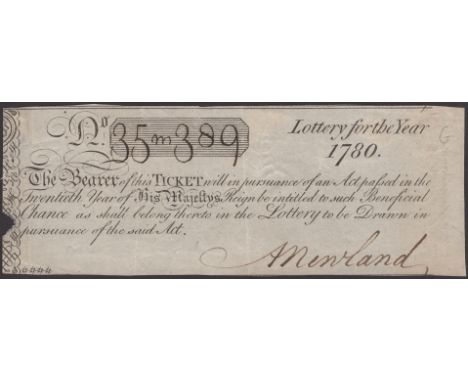 No. 35m389
Lottery for the Year
1780.
The Bearer of this TICKET will in pursuance of an Act passed in the
Twentieth Year of His Majestys Reign be intitled to such Beneficial
Chance as shall belong thereto in the Lottery to be Drawn in
pursuance of the said Act.
ANewland
G